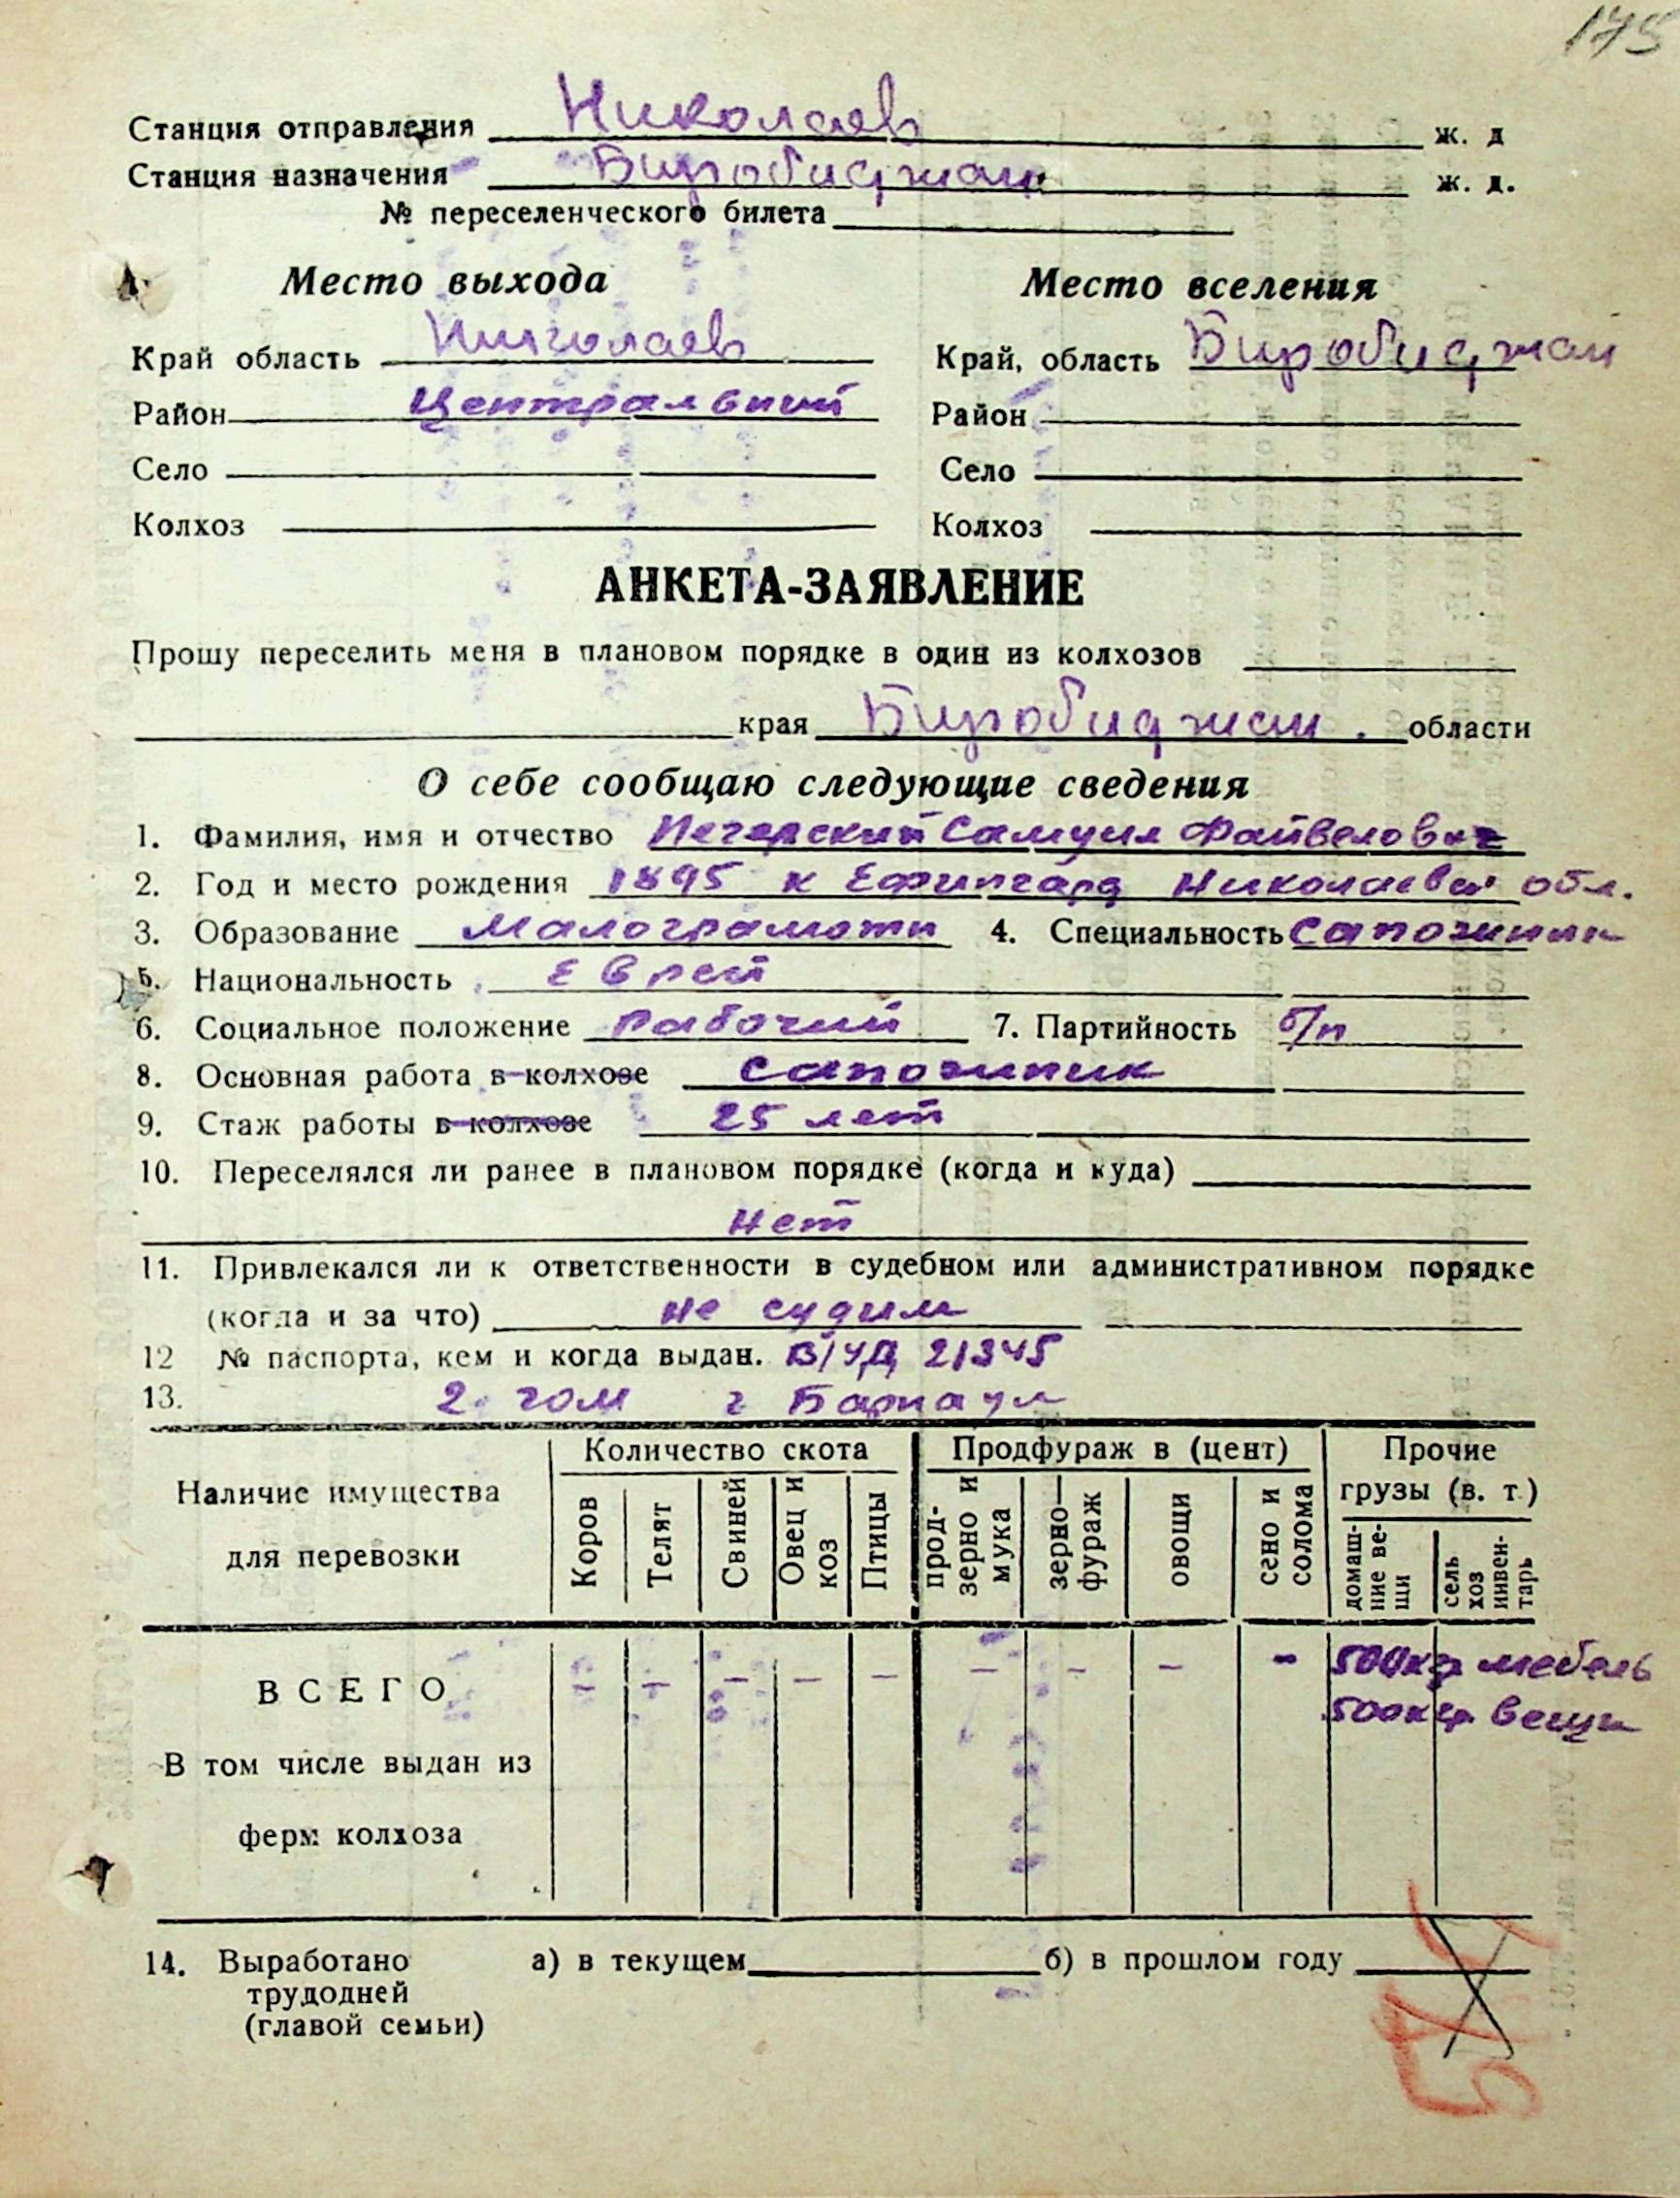 175
Станция отправления Николаев ж. д
Станция назначения Биробиджан ж. д.
№ переселенческого билета
Место выхода
Место вселения
Край область Николаев
Край, область Биробиджан
Район Центральний
Район
Село
Село
Колхоз
Колхоз
АНКЕТА-ЗАЯВЛЕНИЕ
Прошу переселить меня в плановом порядке в один из колхозов
края Биробиджан. области
О себе сообщаю следующие сведения
1. Фамилия, имя и отчество Печерский Самуил Файвелович
2. Год и место рождения 1895 к Ефингард Николаевск обл.
3. Образование Малограмотн 4. Специальность Сапожник
5. Национальность Еврей
6. Социальное положение Рабочий 7. Партийность б/п
8. Основная работа в колхозе сапожник
9. Стаж работы в колхозе 25 лет
10. Переселялся ли ранее в плановом порядке (когда и куда)
Нет
11. Привлекался ли к ответственности в судебном или административном порядке
(когда и за что) не судим
12 № паспорта, кем и когда выдан. В/УД 21345
13. 2. гом г Барнаул
Наличие имущества
для перевозки
Количество скота
Коров
Телят
Свиней
Овец и
коз
Птицы
Продфураж в (цент)
прод-
зерно и
мука
зерно—
фураж
овощи
сено и
солома
Прочие
грузы (в. т.)
домаш-
ние ве-
щи
сель
хоз
инвен-
тарь
ВСЕГО - - - - - - - - - 500кгр мебель
500кгр вещи
В том числе выдан из
ферм колхоза
14. Выработано а) в текущем б) в прошлом году
трудодней
(главой семьи)